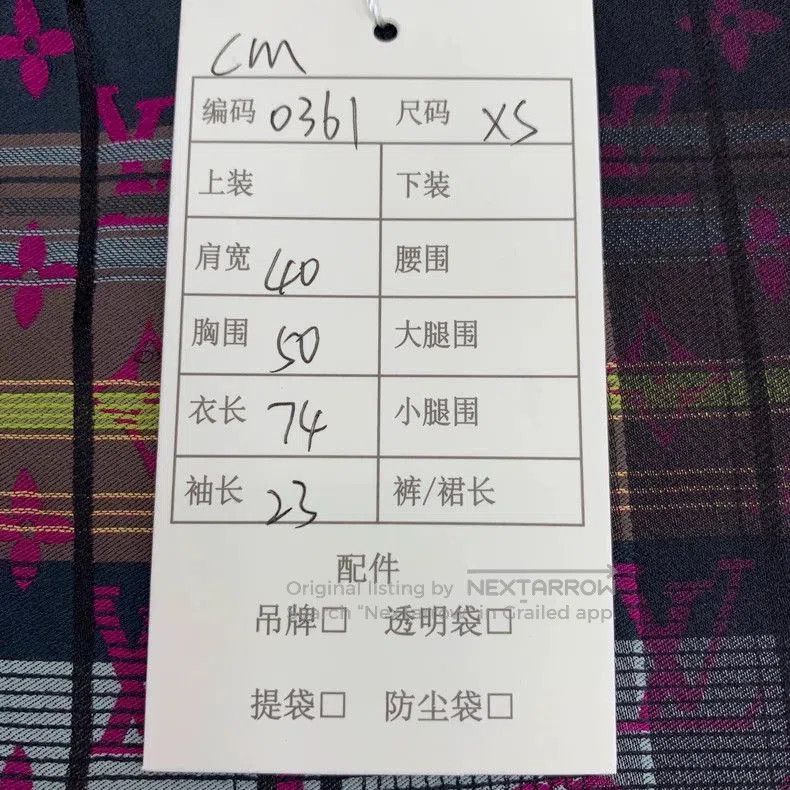 cm
编码 0361 尺码 XS
上装 下装
肩宽 40 腰围
胸围 50 大腿围
衣长 74 小腿围
袖长 23 裤/裙长
配件
Original listing by NEXTARROW
in Grailed app
吊牌□ 透明袋□
提袋□ 防尘袋□